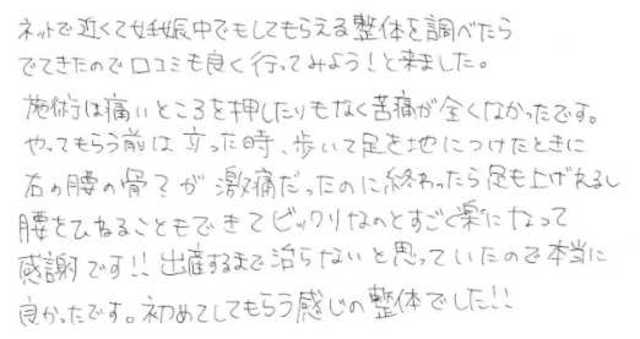 ネットで近くて妊娠中でもしてもらえる整体を調べたら
でてきたので口コミも良く行ってみよう!と来ました。
施術は痛いところを押したりもなく苦痛が全くなかったです。
やってもらう前は立った時、歩いて足を地につけたときに
右の腰の骨?が激痛だったのに終わったら足も上げれるし
腰をひねることもできてビックリなのとすごく楽になって
感謝です!!出産するまで治らないと思っていたので本当に
良かったです。初めてしてもらう感じの整体でした!!